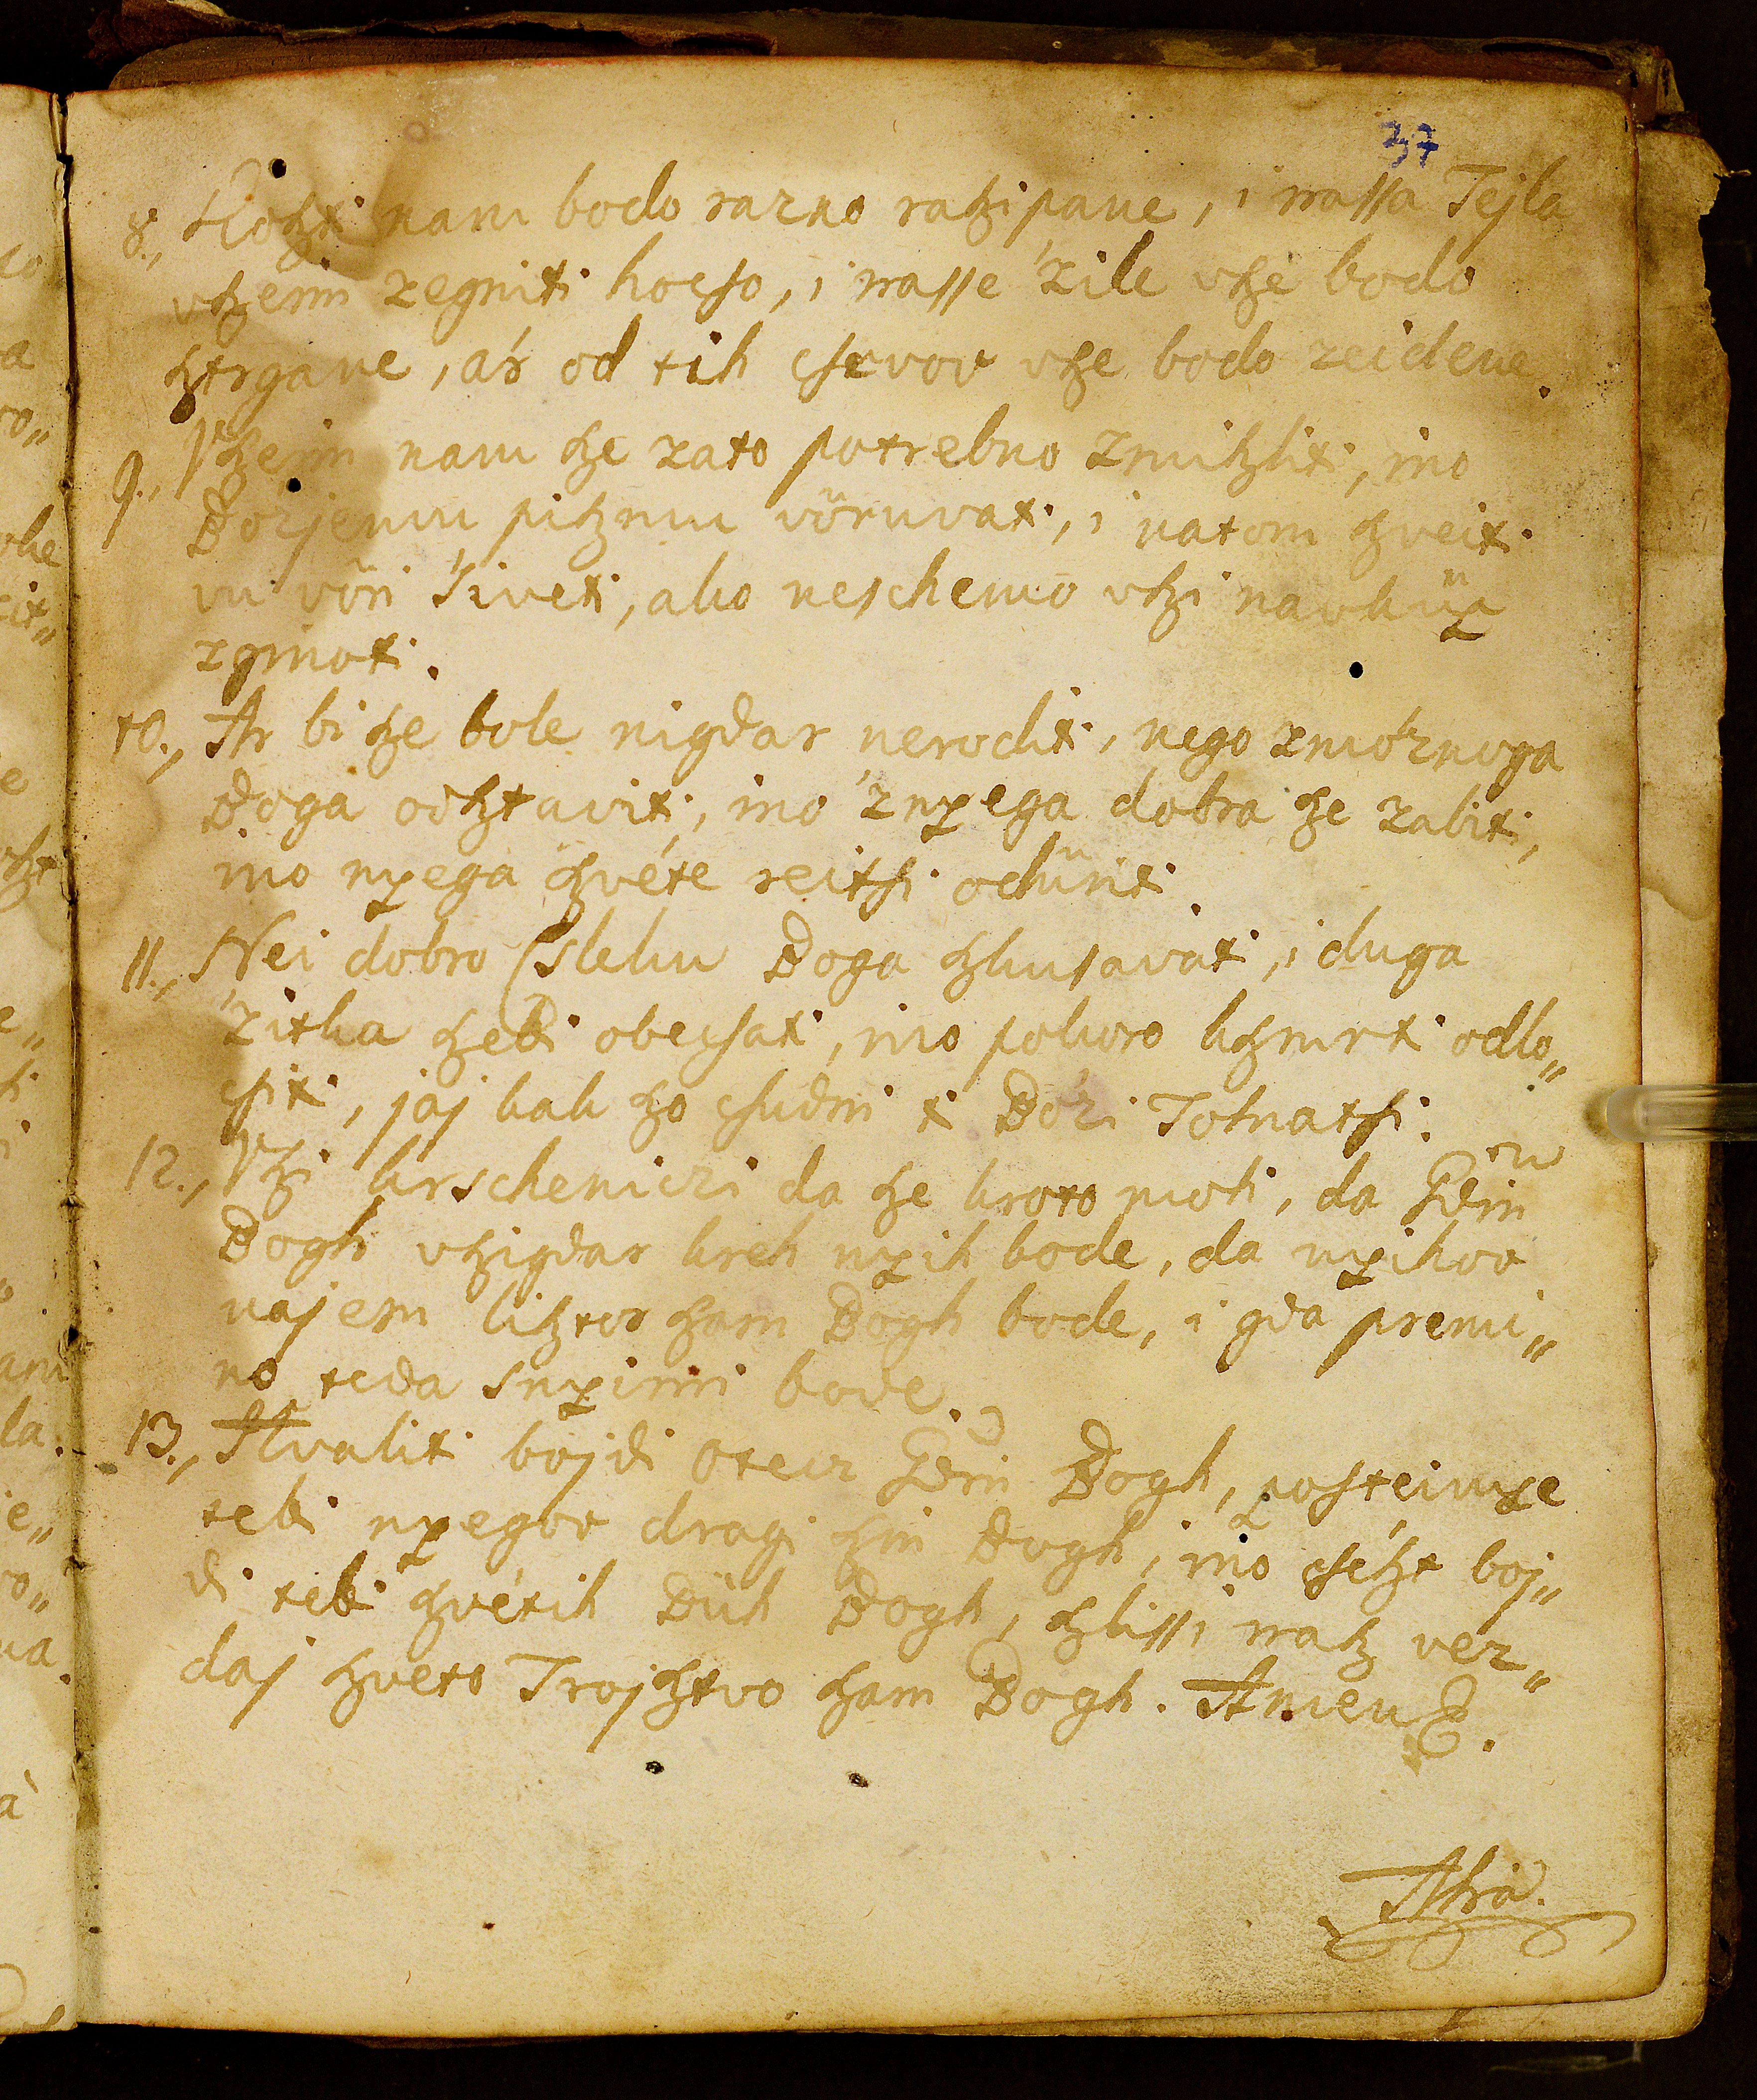 37
8., Kotzti nam bodo razno ratzipane, i nassa Tejla
vtzeim zegniti hocso, i nasse 'zile vtze bodo
tztrgane, ár od tih cservov vtze bodo zeidene.
9., Vtzeim nam tze zato potrebno zmitzliti, ino
Bo'zjemu pitzmu vörüvati, i natom tzveiti
vu vöri 'siveti, ako neschemo vtzi navküp
zginoti.
10., Ar bi tze bole nigdar neroditi, nego zmo'znoga
Boga odtztaviti, ino 'znyega dobra tze zabiti,
ino nyega tzvéte reitsi odüriti.
11., Nei dobro Cslekn Boga tzkusavati, i duga
'zitka tzebi obecsati, ino pokoro ktzmrti odlo„
csiti, jaj kak tzo csudni ti Bo'zi Tolnatsi.
12., Vtzi krscheniczi da tze kroto moti, da Gdin
Bogh vtzigdar kreh nyih bode, da nyihov
vajem litztor tzam Bogh bode, i gda premi„
no teda snyimi bode.
13., Hvaliti bojdi Otecz Gdin Bogh, postuimye
tebi nyegov dragi tzin Bogh, ino csétzt boj„
di tebi tzvétih Düh Bogh, tzlissi natz vez„
daj tzveto Trojtztvo tzam Bogh. Amen.
Ahia.